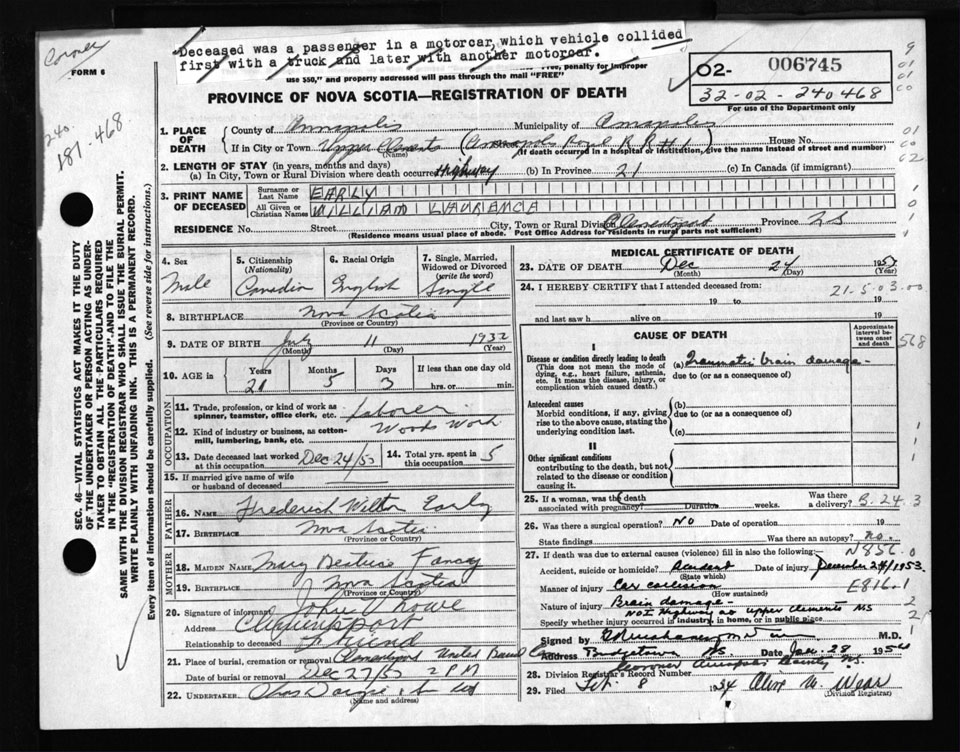 Coroner
Deceased was a passenger in a motorcar, which vehicle collided
first with a truck and later with another motorcar.
FORM 6
Free, penalty for improper
use $50," and property addressed will pass through the mail "FREE"
O2- 006745
32-02-240468
For use of the Department only
PROVINCE OF NOVA SCOTIA—REGISTRATION OF DEATH
240
181-468
1. PLACE OF DEATH
County of Annapolis Municipality of Annapolis
If in City or Town Upper Clements (Annapolis Royal R R #1) House No.
(Name) (If death occurred in a hospital or institution, give the name instead of street and number)
2. LENGTH OF STAY (in years, months and days)
(a) In City, Town or Rural Division where death occurred Highway (b) In Province 21 (c) In Canada (if immigrant)
3. PRINT NAME OF DECEASED
Surname or Last Name EARLY
All Given or Christian Names WILLIAM LAURENCE
RESIDENCE No. Street City, Town or Rural Division Clementsport Province NS
(Residence means usual place of abode. Post Office Address for residents in rural parts not sufficient)
SEC. 46—VITAL STATISTICS ACT MAKES IT THE DUTY
OF THE UNDERTAKER OR PERSON ACTING AS UNDER-
TAKER TO OBTAIN ALL THE PARTICULARS REQUIRED
IN THE "REGISTRATION OF DEATH" AND TO FILE THE
SAME WITH THE DIVISION REGISTRAR WHO SHALL ISSUE THE BURIAL PERMIT.
WRITE PLAINLY WITH UNFADING INK. THIS IS A PERMANENT RECORD.
Every item of information should be carefully supplied. (See reverse side for instructions.)
4. Sex
Male
5. Citizenship
(Nationality)
Canadian
6. Racial Origin
English
7. Single, Married, Widowed or Divorced
(write the word)
Single
8. BIRTHPLACE Nova Scotia
(Province or Country)
9. DATE OF BIRTH July 11 1932
(Month) (Day) (Year)
10. AGE in Years Months Days If less than one day old
21 5 3 hrs. or min.
OCCUPATION
11. Trade, profession, or kind of work as
spinner, teamster, office clerk, etc. Laborer
12. Kind of industry or business, as cotton-
mill, lumbering, bank, etc. Woods Work
13. Date deceased last worked at this occupation Dec 24/53
14. Total yrs. spent in this occupation 5
15. If married give name of wife
or husband of deceased
FATHER
16. Name Frederick Early
17. Birthplace Nova Scotia
(Province or Country)
MOTHER
18. MAIDEN NAME Mary Beatrice Fancy
19. BIRTHPLACE Nova Scotia
(Province or Country)
20. Signature of informant John Lowe
Address Clementsport
Relationship to deceased Friend
21. Place of burial, cremation or removal Clementsport United Baptist
Date of burial or removal Dec 27/53 2 PM
22. UNDERTAKER
(Name and address)
MEDICAL CERTIFICATE OF DEATH
23. DATE OF DEATH Dec 24 1953
(Month) (Day) (Year)
24. I HEREBY CERTIFY that I attended deceased from: 21-5-03.00
19 to 19
and last saw h alive on 19
CAUSE OF DEATH
Approximate interval between onset and death
568
I
Disease or condition directly leading to death
(This does not mean the mode of dying, e.g., heart failure, asthenia, etc. It means the disease, injury, or complication which caused death.)
(a) Traumatic brain damage-
due to (or as a consequence of)
Antecedent causes
Morbid conditions, if any, giving rise to the above cause, stating the underlying condition last.
(b)
due to (or as a consequence of)
(c)
II
Other significant conditions
contributing to the death, but not related to the disease or condition causing it.
25. If a woman, was the death
associated with pregnancy? Duration weeks. Was there a delivery? B.24.3
26. Was there surgical operation? NO Date of operation 19
State findings Was there an autopsy? no.
27. If death was due to external causes (violence) fill in also the following: N856.0
Accident, suicide or homicide? Accident Date of injury December 24/1953
(State which)
Manner of injury Car collision E816.1
(How sustained)
Nature of injury Brain damage-
NO 1 Highway at Upper Clements NS
Specify whether injury occurred in industry, in home, or in public place
Signed by M.D.
Address Bridgetown NS Date Jan. 28 1954
Coroner Annapolis County NS.
28. Division Registrar's Record Number
29. Filed Feb. 8 1954 Wear
(Division Registrar)